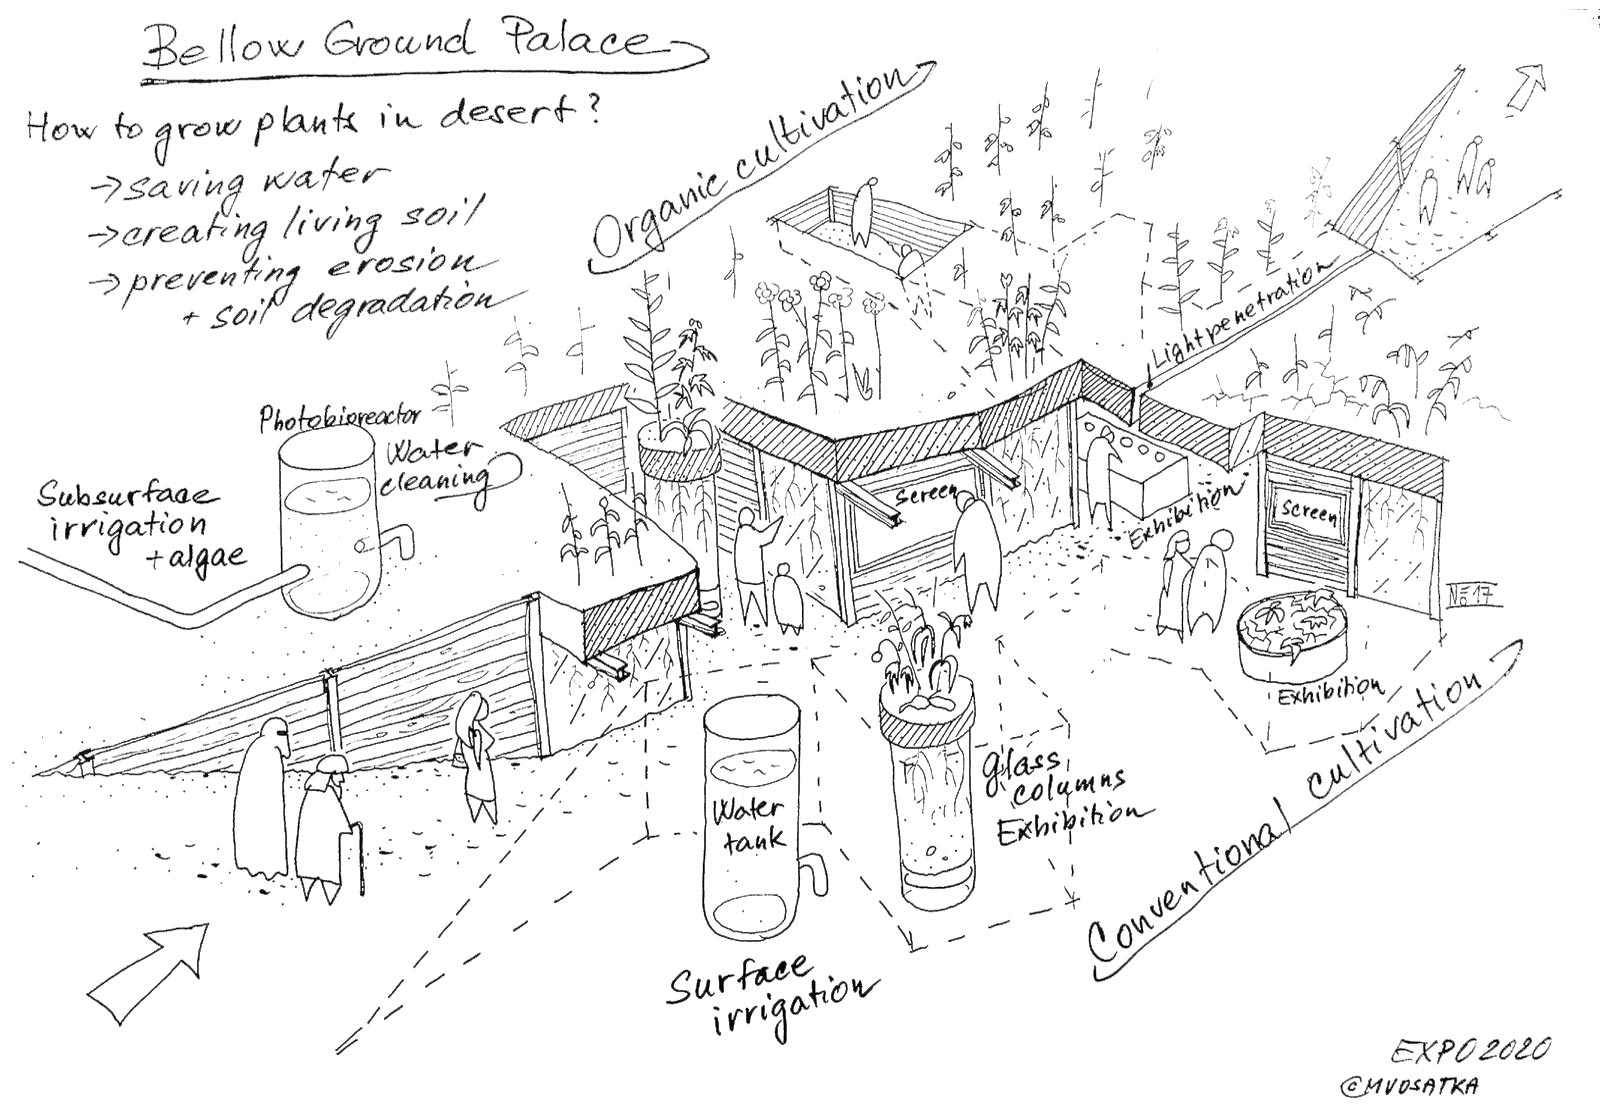 Bellow Ground Palace
How to grow plants in desert?
→saving water
→creating living soil
→preventing erosion
+ soil degradation
Organic cultivation
Lightpenetration
Photobioreactor
Water
cleaning
Subsurface
irrigation
+algae
Screen
Exhibition
Screen
Exhibition
Water
tank
glass
columns
Exhibition
Surface
irrigation
Conventional cultivation
EXPO2020
©MVOSATKA